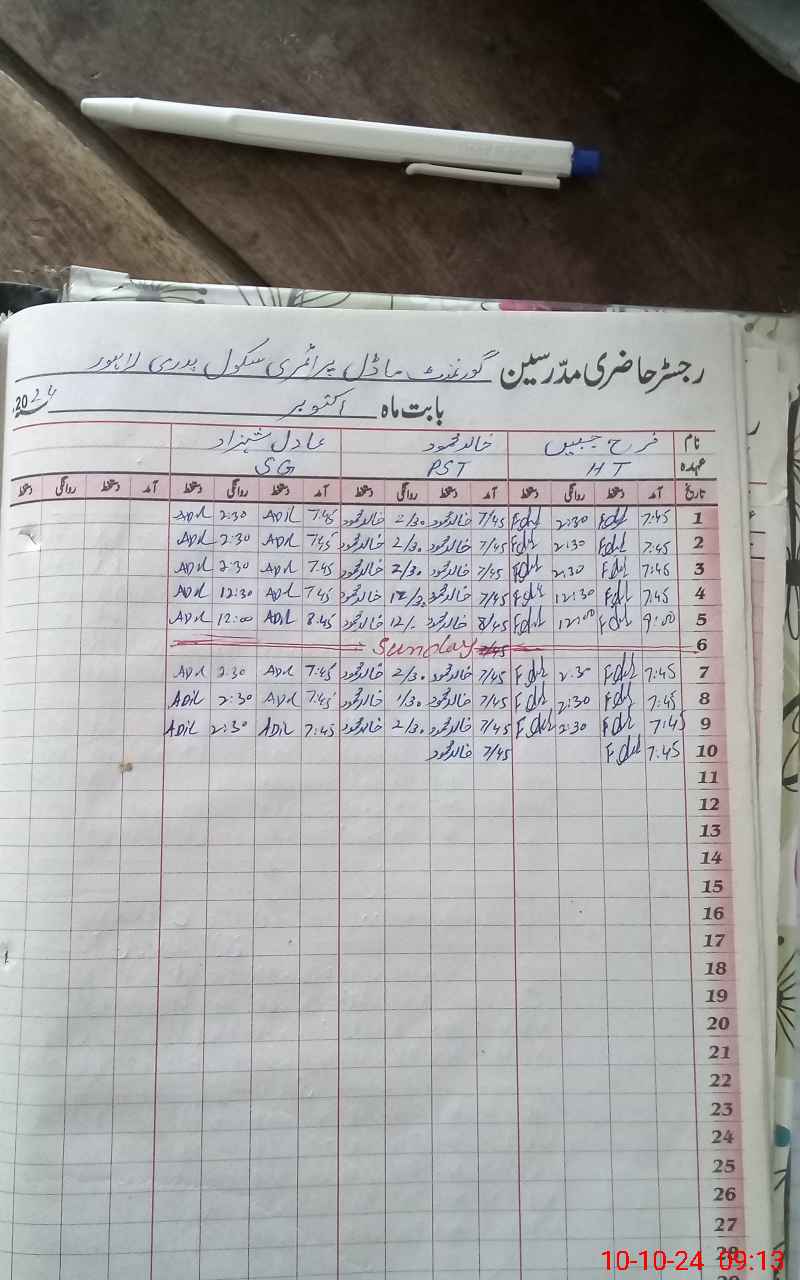 رجسٹر حاضری مدرسین گورنمنٹ ماڈل پرائمری سکول پدری لاہور
بابت ماہ اکتوبر 2024
نام فرح جبیں خالد محمود عادل شہزاد
عہدہ HT PST SG
تاریخ آمد دستخط روانگی دستخط آمد دستخط روانگی دستخط آمد دستخط روانگی دستخط آمد دستخط روانگی دستخط
1 7:45 2:30 7/45 خالد محمود 2/30 خالد محمود 7:45 ADIL 2:30 ADIL
2 7:45 2:30 7/45 خالد محمود 2/30 خالد محمود 7:45 ADIL 2:30 ADIL
3 7:45 2:30 7/45 خالد محمود 2/30 خالد محمود 7:45 ADIL 2:30 ADIL
4 7:45 12:30 7/45 خالد محمود 12/30 خالد محمود 7:45 ADIL 12:30 ADIL
5 9:00 12:00 8/45 خالد محمود 12/- خالد محمود 8:45 ADIL 12:00 ADIL
6 Sunday
7 7:45 2:30 7/45 خالد محمود 2/30 خالد محمود 7:45 ADIL 2:30 ADIL
8 7:45 2:30 7/45 خالد محمود 1/30 خالد محمود 7:45 ADIL 2:30 ADIL
9 7:45 2:30 7/45 خالد محمود 2/30 خالد محمود 7:45 ADIL 2:30 ADIL
10 7:45 7/45 خالد محمود
11
12
13
14
15
16
17
18
19
20
21
22
23
24
25
26
27
28
10-10-24 09:13